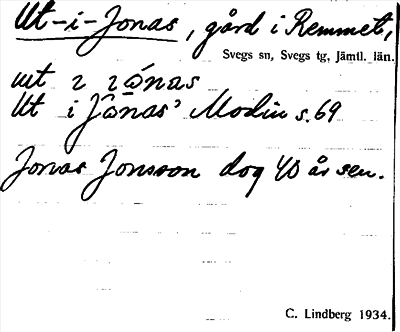 Ut-i-Jonas, gård i Remmet,
Svegs sn, Svegs tg, Jämtl. län.
Ut i Jånas' Modin s. 69
Jonas Jonsson dog 40 år sen.
C. Lindberg 1934.